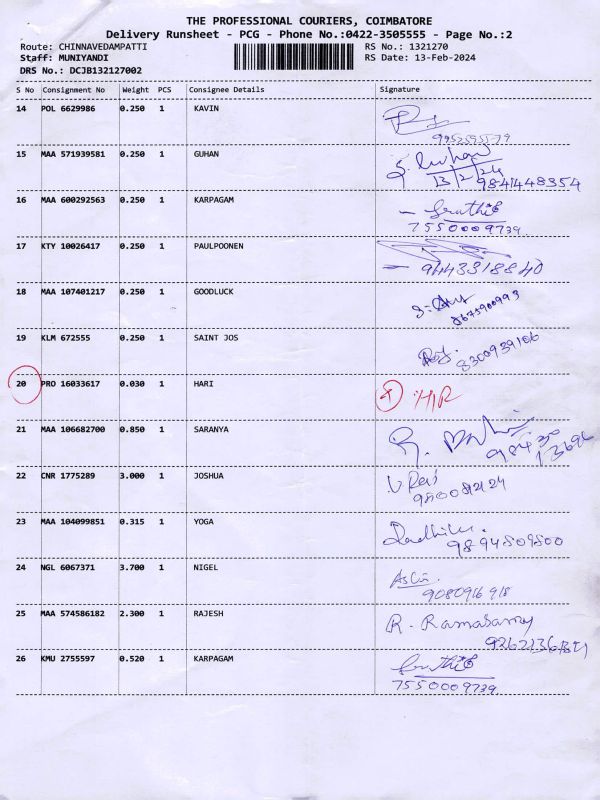 THE PROFESSIONAL COURIERS, COIMBATORE
Delivery Runsheet - PCG - Phone No.:0422-3505555 - Page No.:2
Route: CHINNAVEDAMPATTI RS No.: 1321270
Staff: MUNIYANDI RS Date: 13-Feb-2024
DRS No.: DCJB132127002
S No Consignment No Weight PCS Consignee Details Signature
14 POL 6629986 0.250 1 KAVIN
15 MAA 571939581 0.250 1 GUHAN
13/2/24
9841448354
16 MAA 600292563 0.250 1 KARPAGAM
7550009739
17 KTY 10026417 0.250 1 PAULPOONEN
9443318840
18 MAA 107401217 0.250 1 GOODLUCK
19 KLM 672555 0.250 1 SAINT JOS
8300939106
20 PRO 16033617 0.030 1 HARI
21 MAA 106682700 0.850 1 SARANYA
22 CNR 1775289 3.000 1 JOSHUA
23 MAA 104099851 0.315 1 YOGA
9894509500
24 NGL 6067371 3.700 1 NIGEL
9080916918
25 MAA 574586182 2.300 1 RAJESH
R. Ramasamy
26 KMU 2755597 0.520 1 KARPAGAM
7550009739